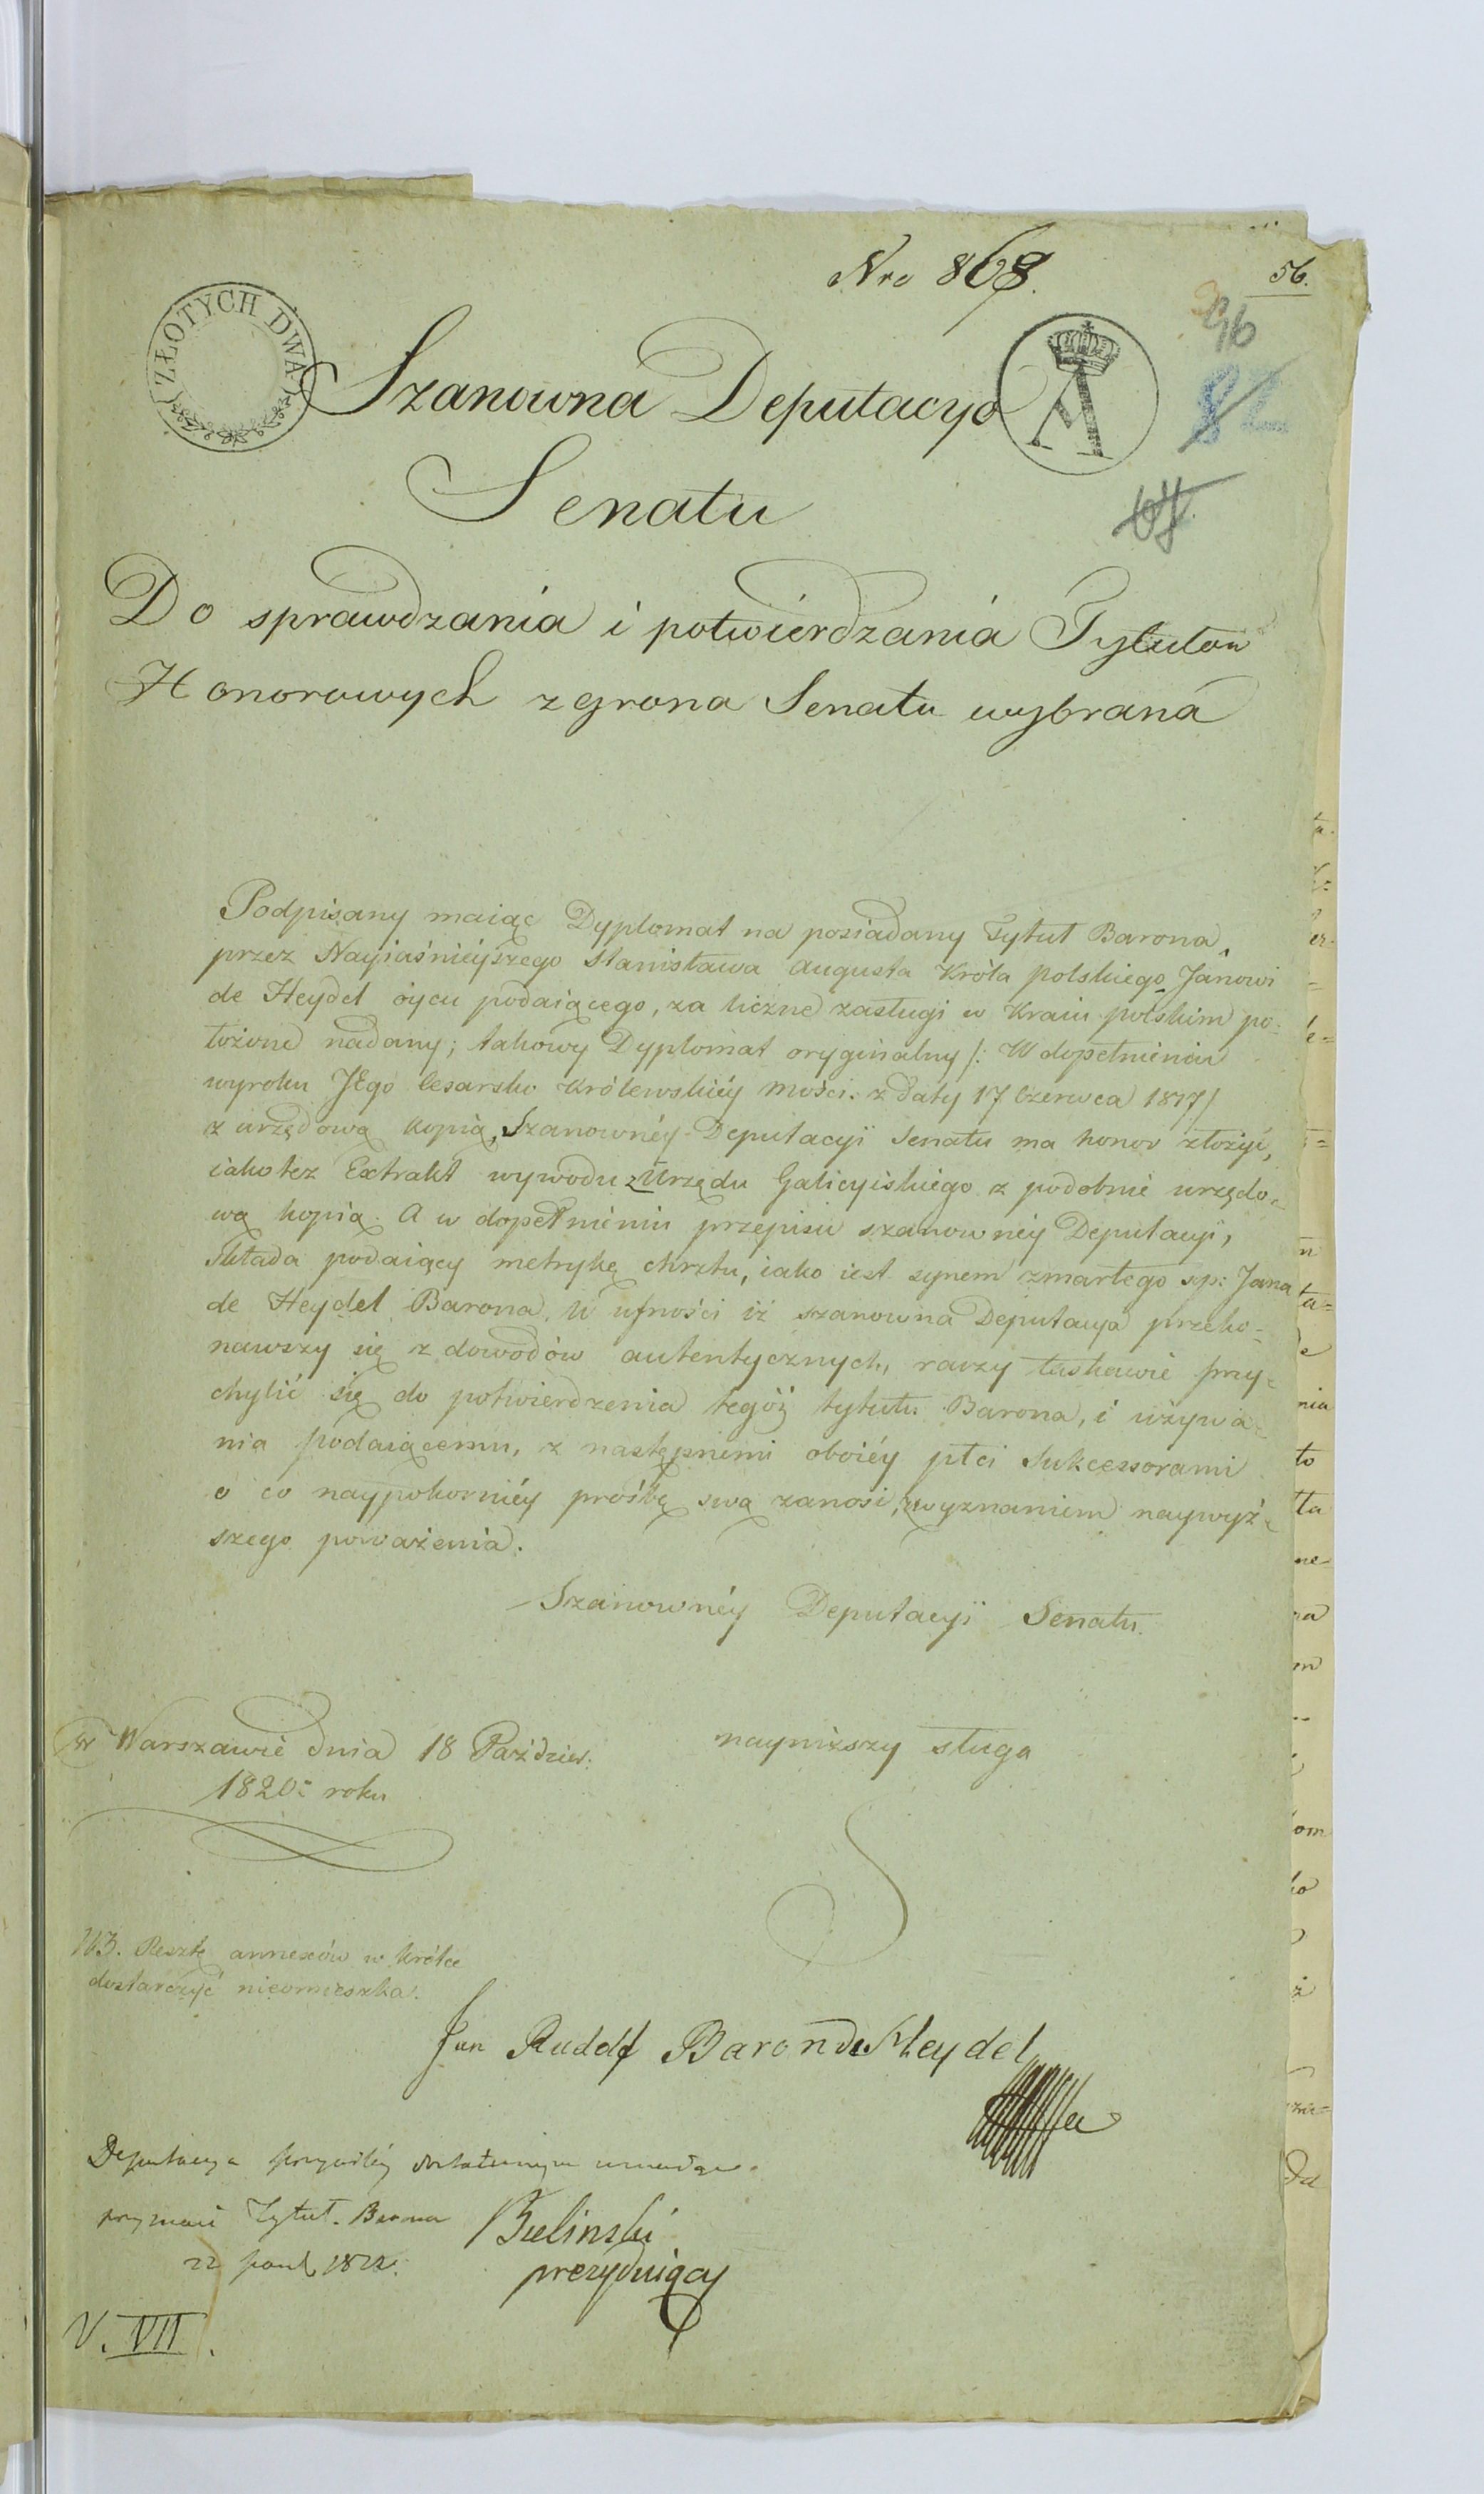 Nro 868.
56.
96
82
ZŁOTYCH DWA
A
Szanowna Deputacyo
Senatu
Do sprawdzania i potwierdzania Tytułow
Honorowych z grona Senatu wybrana
Podpisany maiąc Dyplomat na posiadany Tytuł Barona,
przez Nayiaśnieyszego Stanisława Augusta Króla polskiego Janowi
de Heydel oycu podaiącego, za liczne zasługi w Kraiu polskim po-
łożone nadany; takowy Dyplomat oryginalny /: W dopełnieniu
wyroku JEgo Cesarsko Królewskiéy Mości z daty 17 Czerwca 1817/
z urzędową kopią, Szanownéy Deputacyi Senatu ma honor złożyć,
iako też Extrakt wywodu z Urzędu Galicyiskiego z podobnie urzędo-
wą kopią. A w dopełnieniu przepisu szanownéy Deputacyi,
składa podaiący metrykę chrztu, iako iest synem zmarłego sp: Jana
de Heydel Barona. W ufności iż szanowna Deputacya przeko-
nawszy się z dowodów autentycznych, raczy łaskawie przy-
chylić się do potwierdzenia tegóż tytułu Barona, i używa-
nia podaiącemu, z następnemi oboiéy płci Sukcessorami
o co naypokorniéy prośbę swą zanosi, z wyznaniem naywyż-
szego poważenia.
Szanownéy Deputacyi Senatu
w Warszawie dnia 18 Paździer.
nayniższy sługa
1820: roku
NB. Resztę annexów w krótce
dostarczyć nieomieszka.
Jan Rudolf Baron de Heydel
Deputacya
przyznaie Tytuł Barona
Bielinski
prezyduiący
V. VII.